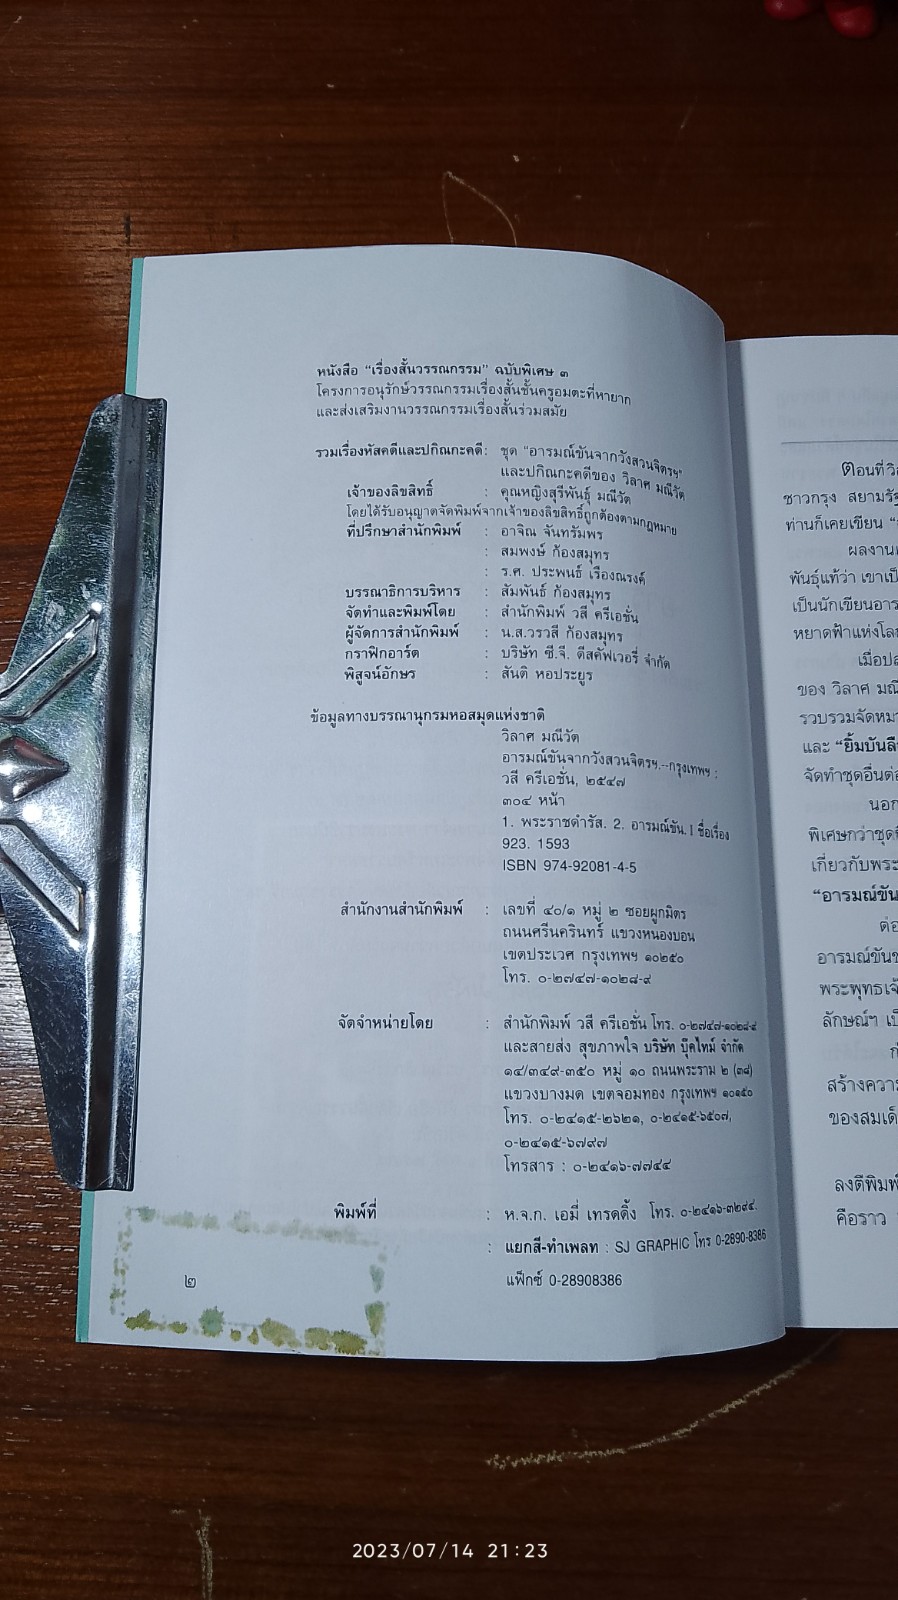 หนังสือ “เรื่องสั้นวรรณกรรม” ฉบับพิเศษ ๓
โครงการอนุรักษ์วรรณกรรมเรื่องสั้นชั้นครูอมตะที่หายาก
และส่งเสริมงานวรรณกรรมเรื่องสั้นร่วมสมัย
รวมเรื่องหัสคดีและปกิณกะคดี : ชุด “อารมณ์ขันจากวังสวนจิตรฯ”
และปกิณกะคดีของ วิลาศ มณีวัต
เจ้าของลิขสิทธิ์ : คุณหญิงสุรีพันธุ์ มณีวัต
โดยได้รับอนุญาตจัดพิมพ์จากเจ้าของลิขสิทธิ์ถูกต้องตามกฎหมาย
ที่ปรึกษาสำนักพิมพ์ : อาจิณ จันทรัมพร
: สมพงษ์ ก้องสมุทร
: ร.ศ. ประพนธ์ เรืองณรงค์
บรรณาธิการบริหาร : สัมพันธ์ ก้องสมุทร
จัดทำและพิมพ์โดย : สำนักพิมพ์ วสี ครีเอชั่น
ผู้จัดการสำนักพิมพ์ : น.ส.วรวสี ก้องสมุทร
กราฟิกอาร์ต : บริษัท ซี.จี. ดีสคัฟเวอรี่ จำกัด
พิสูจน์อักษร : สันติ หอประยูร
ข้อมูลทางบรรณานุกรมหอสมุดแห่งชาติ
วิลาศ มณีวัต
อารมณ์ขันจากวังสวนจิตรฯ.--กรุงเทพฯ :
วสี ครีเอชั่น, ๒๕๔๗
๓๐๔ หน้า
1. พระราชดำรัส. 2. อารมณ์ขัน. I ชื่อเรื่อง
923. 1593
ISBN 974-92081-4-5
สำนักงานสำนักพิมพ์ : เลขที่ ๔๐/๑ หมู่ ๒ ซอยผูกมิตร
ถนนศรีนครินทร์ แขวงหนองบอน
เขตประเวศ กรุงเทพฯ ๑๐๒๕๐
โทร. ๐-๒๗๔๗-๑๐๒๘-๙
จัดจำหน่ายโดย : สำนักพิมพ์ วสี ครีเอชั่น โทร. ๐-๒๗๔๗-๑๐๒๘-๙
และสายส่ง สุขภาพใจ บริษัท บุ๊คไทม์ จำกัด
๑๔/๓๔๙-๓๕๐ หมู่ ๑๐ ถนนพระราม ๒ (๓๘)
แขวงบางมด เขตจอมทอง กรุงเทพฯ ๑๐๑๕๐
โทร. ๐-๒๔๑๕-๒๖๒๑, ๐-๒๔๑๕-๖๕๐๗,
๐-๒๔๑๕-๖๗๙๗
โทรสาร : ๐-๒๔๑๖-๗๗๔๔
พิมพ์ที่ : ห.จ.ก. เอมี่ เทรดดิ้ง โทร. ๐-๒๔๑๖-๓๒๙๔.
: แยกสี-ทำเพลท : SJ GRAPHIC โทร 0-2890-8386
แฟ็กซ์ 0-28908386
๒
ตอนที่วิล
ชาวกรุง สยามรัฐ
ท่านก็เคยเขียน
ผลงาน
พันธุ์แท้ว่า เขาเป็
เป็นนักเขียนอาร
หยาดฟ้าแห่งโลม
เมื่อปล
ของ วิลาศ มณี
รวบรวมจัดหมว
และ “ยิ้มบันลือ
จัดทำชุดอื่นต่อ
นอก
พิเศษกว่าชุด
เกี่ยวกับพระ
“อารมณ์ขัน
ต่อ
อารมณ์ขัน
พระพุทธเจ้
ลักษณ์ฯ เป็
สร้างความ
ของสมเด็
ลงตีพิมพ์
คือราว
2023/07/14 21:23